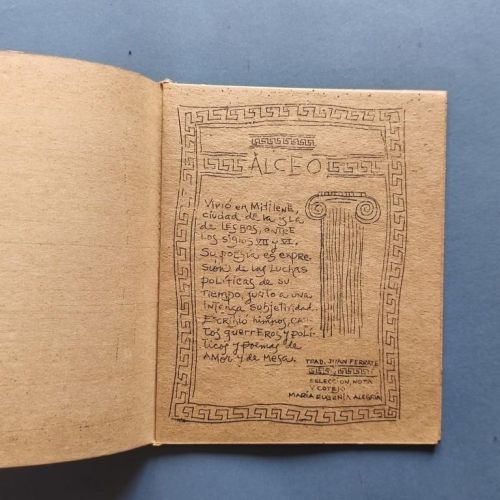 ALCEO
Vivió en Mitilene,
ciudad de la isla
de LESBOS, ENTRE
LOS SIGLOS VII y VI.
Su poesía es expre-
sión de las luchas
políticas de su
tiempo, junto a una
intensa subjetividad.
Escribió himnos, can-
tos guerreros y polí-
ticos y poemas de
AMOR y de MESA.
TRAD. JUAN FERRATÉ
SELECCIÓN, NOTA
Y COTEJO
MARÍA EUGENIA ALEGRÍA